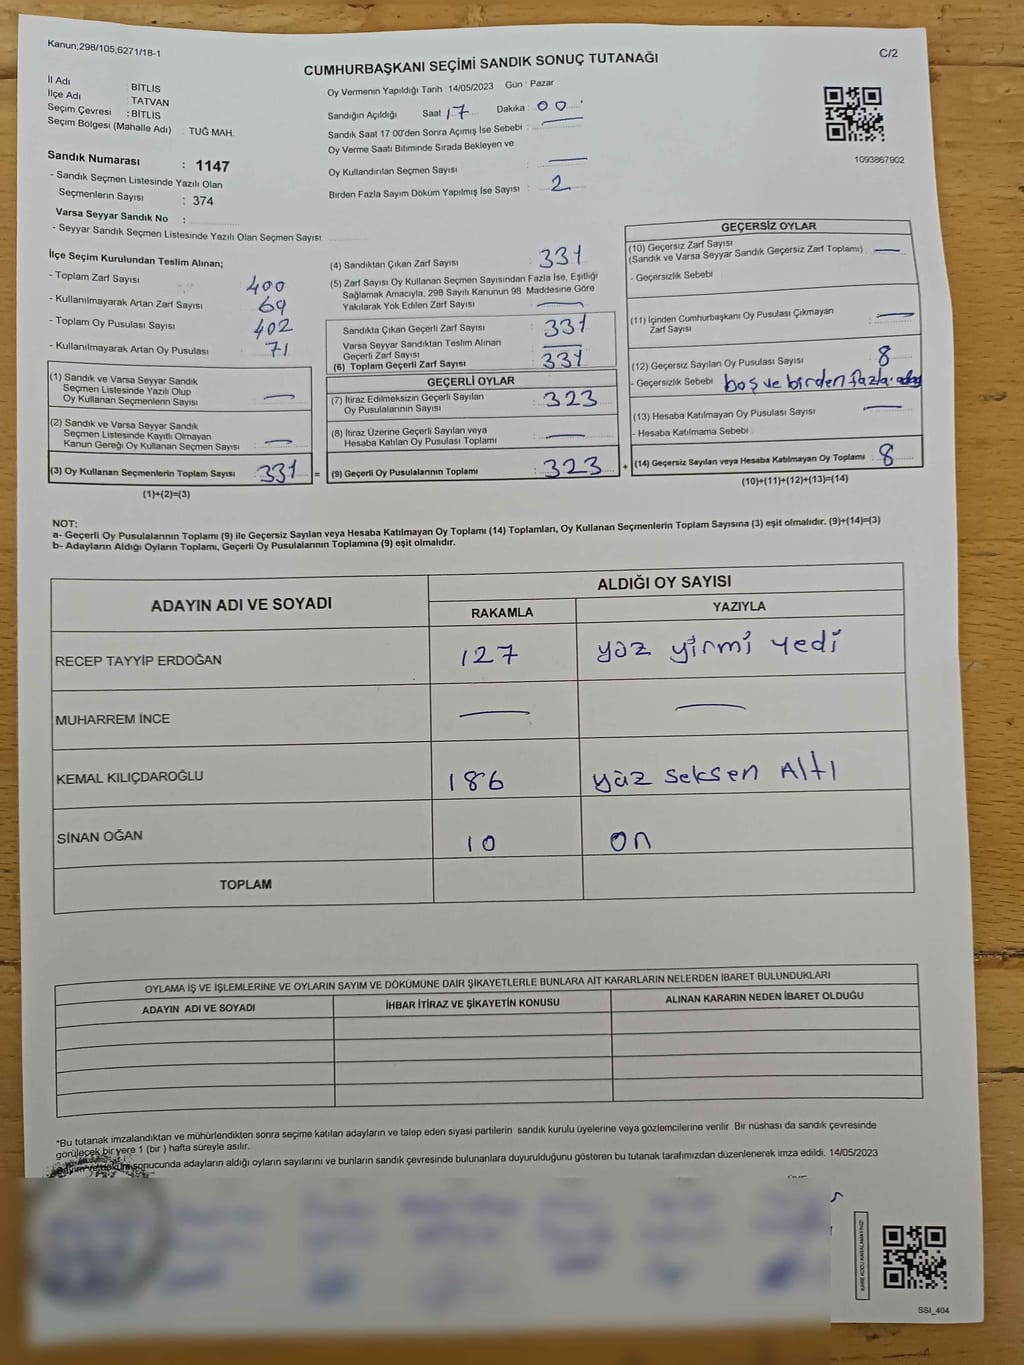 Kanun;298/105,6271/18-1
C/2
CUMHURBAŞKANI SEÇİMİ SANDIK SONUÇ TUTANAĞI
İl Adı BİTLİS
İlçe Adı TATVAN
Seçim Çevresi : BİTLİS
Seçim Bölgesi (Mahalle Adı) : TUĞ MAH.
Sandık Numarası : 1147
- Sandık Seçmen Listesinde Yazılı Olan
Seçmenlerin Sayısı : 374
Varsa Seyyar Sandık No :
- Seyyar Sandık Seçmen Listesinde Yazılı Olan Seçmen Sayısı
Oy Vermenin Yapıldığı Tarih : 14/05/2023 Gün : Pazar
Sandığın Açıldığı Saat 17 Dakika : 00
Sandık Saat 17.00'den Sonra Açımış İse Sebebi :
Oy Verme Saati Bitiminde Sırada Bekleyen ve
Oy Kullandırılan Seçmen Sayısı —
Birden Fazla Sayım Döküm Yapılmış İse Sayısı : 2
1093867902
İlçe Seçim Kurulundan Teslim Alınan;
- Toplam Zarf Sayısı 400
- Kullanılmayarak Artan Zarf Sayısı 69
- Toplam Oy Pusulası Sayısı 402
- Kullanılmayarak Artan Oy Pusulası 71
(1) Sandık ve Varsa Seyyar Sandık
Seçmen Listesinde Yazılı Olup
Oy Kullanan Seçmenlerin Sayısı : —
(2) Sandık ve Varsa Seyyar Sandık
Seçmen Listesinde Kayıtlı Olmayan
Kanun Gereği Oy Kullanan Seçmen Sayısı : —
(3) Oy Kullanan Seçmenlerin Toplam Sayısı : 331 =
(1)+(2)=(3)
(4) Sandıktan Çıkan Zarf Sayısı : 331
(5) Zarf Sayısı Oy Kullanan Seçmen Sayısından Fazla İse, Eşitliği
Sağlamak Amacıyla, 298 Sayılı Kanunun 98. Maddesine Göre
Yakılarak Yok Edilen Zarf Sayısı : —
Sandıkta Çıkan Geçerli Zarf Sayısı : 331
Varsa Seyyar Sandıktan Teslim Alınan
Geçerli Zarf Sayısı : —
(6) Toplam Geçerli Zarf Sayısı : 331
GEÇERLİ OYLAR
(7) İtiraz Edilmeksizin Geçerli Sayılan
Oy Pusulalarının Sayısı : 323
(8) İtiraz Üzerine Geçerli Sayılan veya
Hesaba Katılan Oy Pusulası Toplamı : —
(9) Geçerli Oy Pusulalarının Toplamı : 323 +
GEÇERSİZ OYLAR
(10) Geçersiz Zarf Sayısı
(Sandık ve Varsa Seyyar Sandık Geçersiz Zarf Toplamı) : —
- Geçersizlik Sebebi :
(11) İçinden Cumhurbaşkanı Oy Pusulası Çıkmayan
Zarf Sayısı : —
(12) Geçersiz Sayılan Oy Pusulası Sayısı : 8
- Geçersizlik Sebebi : boş ve birden fazla aday
(13) Hesaba Katılmayan Oy Pusulası Sayısı : —
- Hesaba Katılmama Sebebi :
(14) Geçersiz Sayılan veya Hesaba Katılmayan Oy Toplamı : 8
(10)+(11)+(12)+(13)=(14)
NOT:
a- Geçerli Oy Pusulalarının Toplamı (9) ile Geçersiz Sayılan veya Hesaba Katılmayan Oy Toplamı (14) Toplamları, Oy Kullanan Seçmenlerin Toplam Sayısına (3) eşit olmalıdır. (9)+(14)=(3)
b- Adayların Aldığı Oyların Toplamı, Geçerli Oy Pusulalarının Toplamına (9) eşit olmalıdır.
ADAYIN ADI VE SOYADI ALDIĞI OY SAYISI
RAKAMLA YAZIYLA
RECEP TAYYİP ERDOĞAN 127 yüz yirmi yedi
MUHARREM İNCE — —
KEMAL KILIÇDAROĞLU 186 yüz seksen Altı
SİNAN OĞAN 10 on
TOPLAM
OYLAMA İŞ VE İŞLEMLERİNE VE OYLARIN SAYIM VE DÖKÜMÜNE DAİR ŞİKAYETLERLE BUNLARA AİT KARARLARIN NELERDEN İBARET BULUNDUKLARI
ADAYIN ADI VE SOYADI İHBAR İTİRAZ VE ŞİKAYETİN KONUSU ALINAN KARARIN NEDEN İBARET OLDUĞU
*Bu tutanak imzalandıktan ve mühürlendikten sonra seçime katılan adayların ve talep eden siyasi partilerin sandık kurulu üyelerine veya gözlemcilerine verilir. Bir nüshası da sandık çevresinde
görülecek bir yere 1 (bir ) hafta süreyle asılır.
sonucunda adayların aldığı oyların sayılarını ve bunların sandık çevresinde bulunanlara duyurulduğunu gösteren bu tutanak tarafımızdan düzenlenerek imza edildi. 14/05/2023
KARE KODU KARALAMAYINIZ!
SSI_404